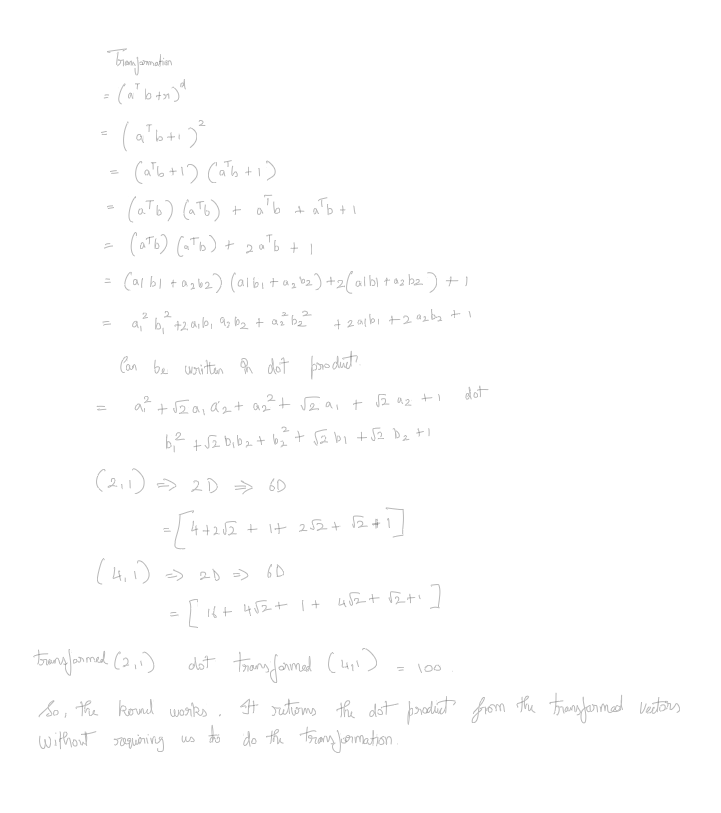 Transformation
= (aᵀb+n)ᵈ
= (aᵀb+1)²
= (aᵀb+1) (aᵀb+1)
= (aᵀb) (aᵀb) + aᵀb + aᵀb + 1
= (aᵀb) (aᵀb) + 2aᵀb + 1
= (a1b1 + a₂b2) (a1b₁ + a₂b₂) + 2(a1b1 + a₂b₂) + 1
= a₁²b₁² + 2a₁b₁ a₂b₂ + a₂²b₂² + 2a1b1 + 2a₂b₂ + 1
Can be written as dot product
= a₁² + √2 a₁ a₂ + a₂² + √2 a₁ + √2 a₂ + 1 dot
b₁² + √2 b₁b₂ + b₂² + √2 b₁ + √2 b₂ + 1
(2,1) ⇒ 2D ⇒ 6D
= [4 + 2√2 + 1 + 2√2 + √2 + 1]
(4,1) ⇒ 2D ⇒ 6D
= [16 + 4√2 + 1 + 4√2 + √2 + 1]
transformed (2,1) dot transformed (4,1) = 100.
So, the kernel works. It returns the dot product from the transformed vectors
without requiring us to do the transformation.